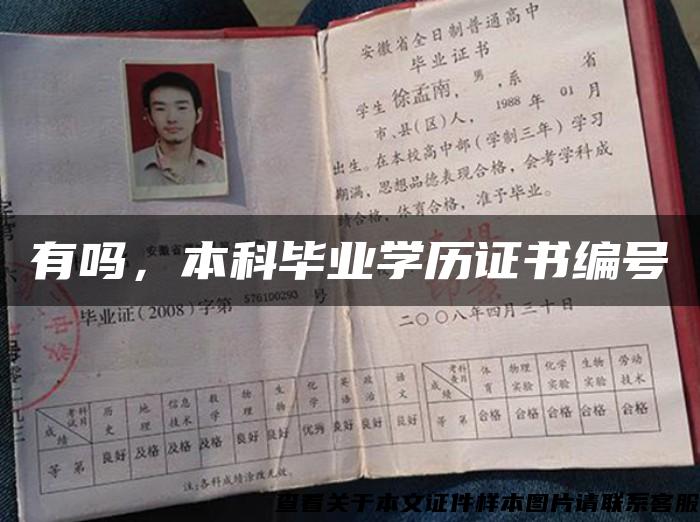 安徽省全日制普通高中
毕业证书
学生 徐孟南，男，系 省
市、县(区)人，1988 年 01 月
出生。在本校高中部（学制三年）学习
期满，思想品德表现合格，会考学科成
绩合格，体育合格，准予毕业。
有吗，本科毕业学历证书编号
毕业证(2008)字第 576100293 号
二〇〇八年四月三十日
成绩 考试科目 历史 地理 信息技术 数学 物理 生物 化学 英语 政治 语文
等第 良好 及格 及格 及格 良好 良好 优秀 良好 良好 良好
注:各科成绩涂改无效。
成绩 考查科目 体育 物理实验 化学实验 生物实验 劳动技术
等第 合格 合格 合格 合格 合格
查看关于本文证件样本图片请联系客服